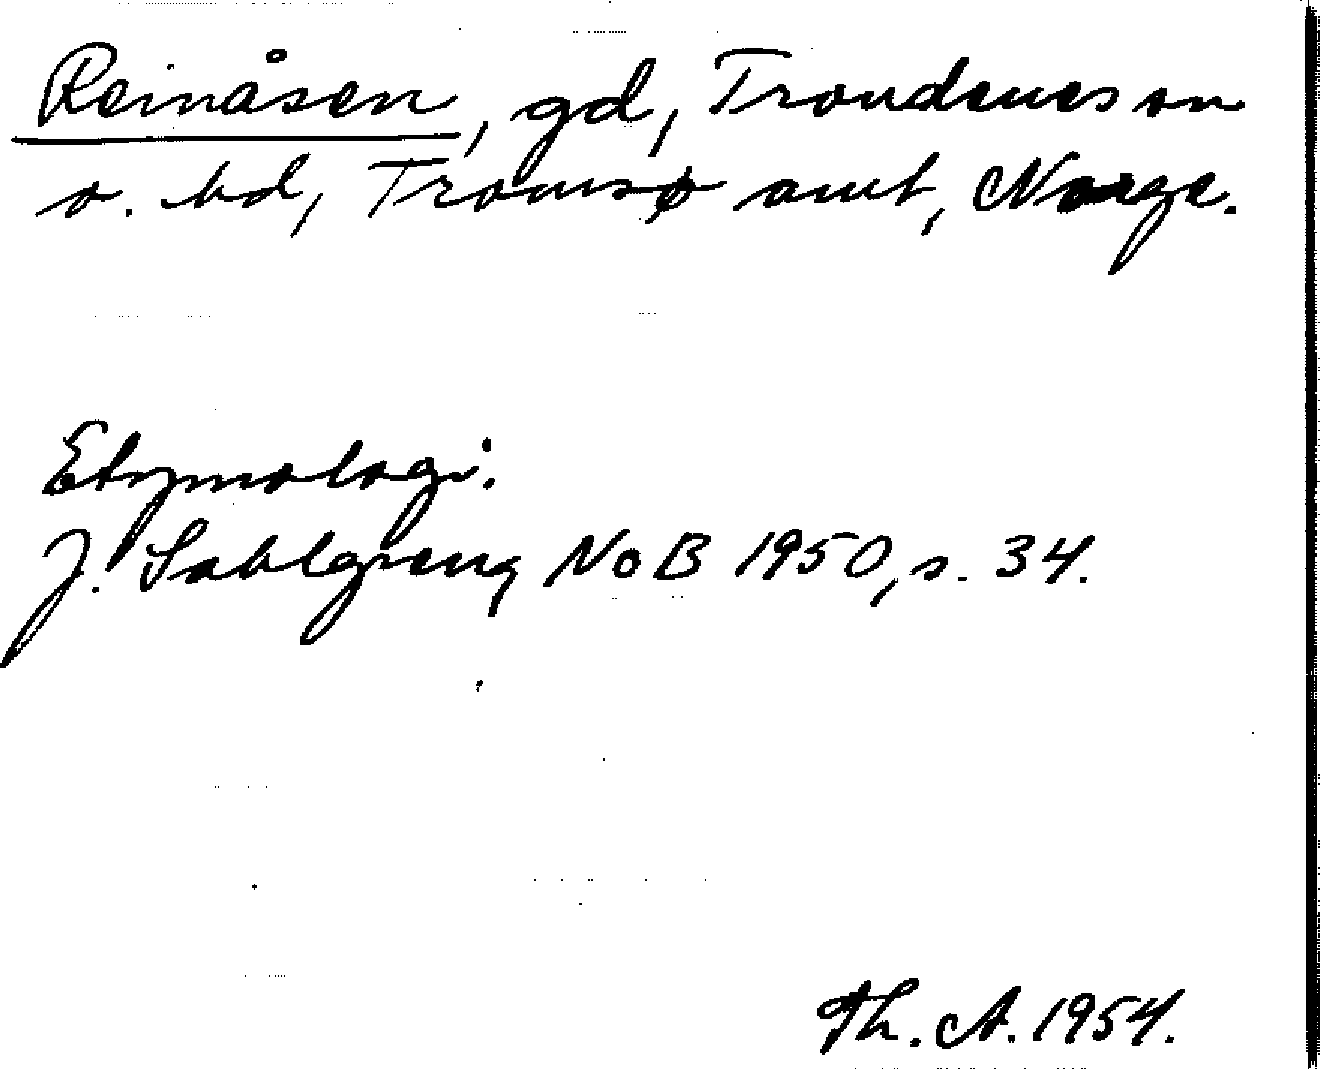 Reinåsen, gd, Trondenes sn
o. hd, Tromsø amt, Norge.
Etymologi:
J. Sahlgren, NoB 1950, s. 34.
Th. A. 1954.